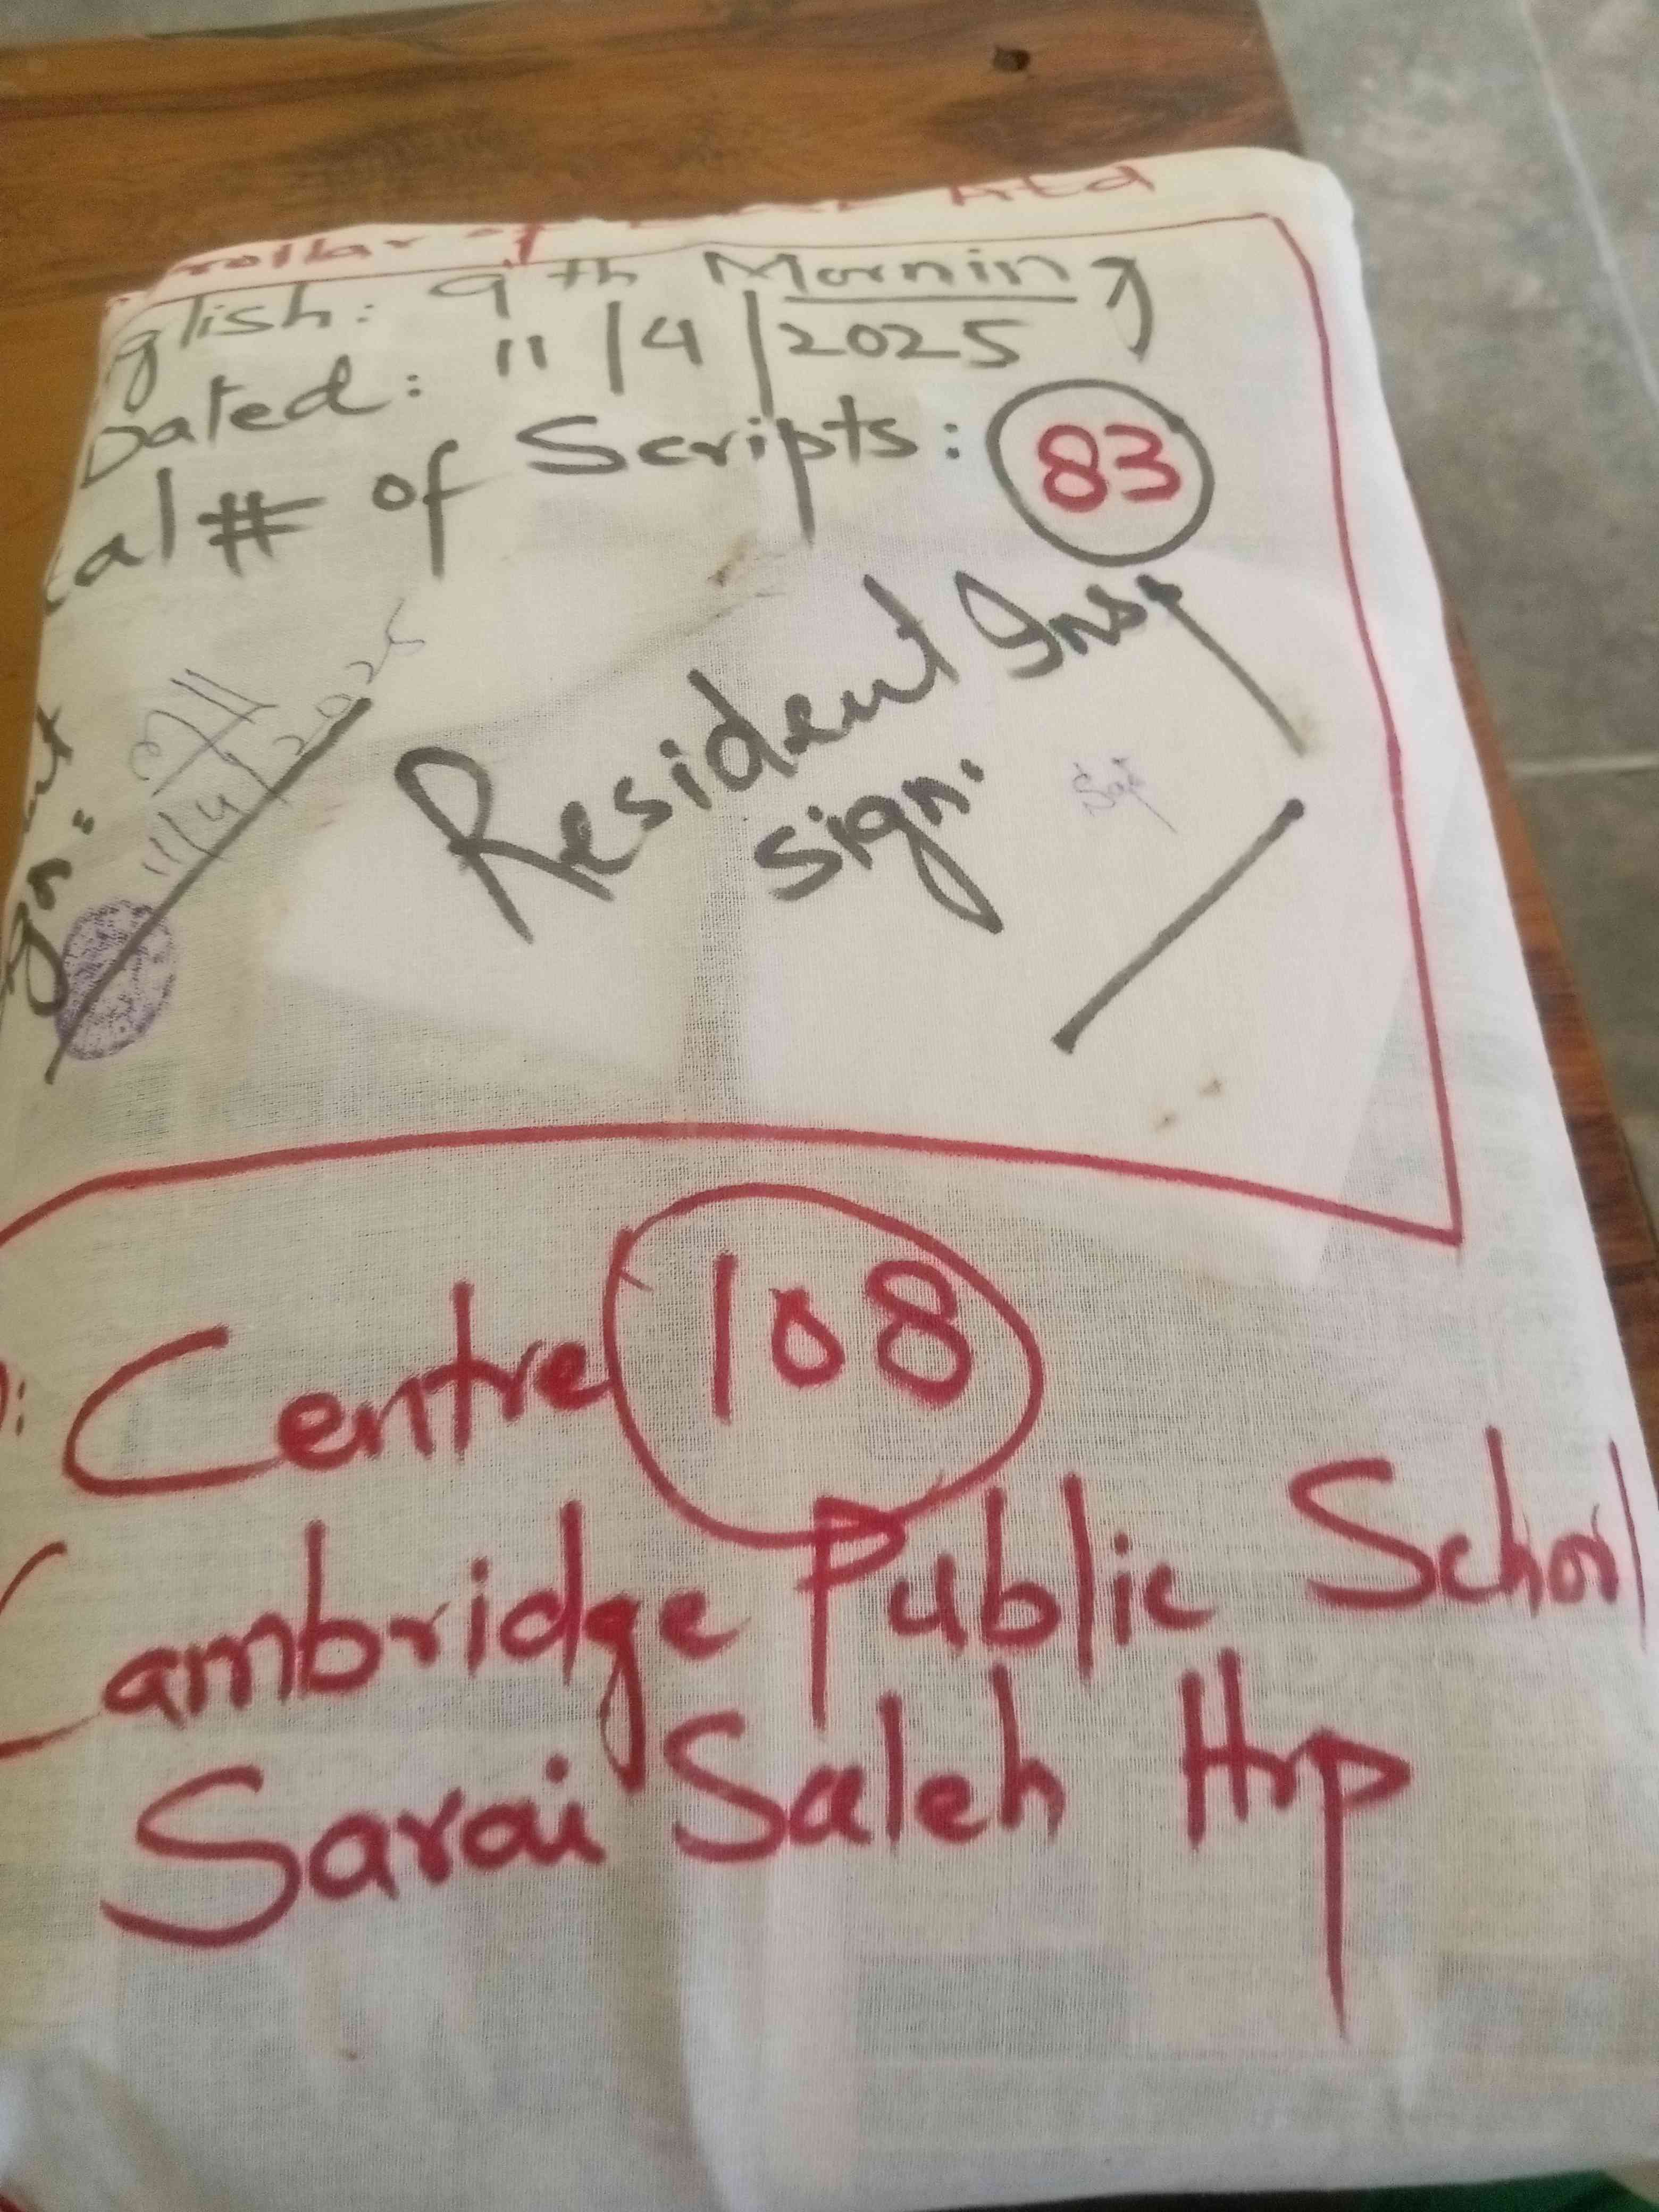 rollar of
Atd
glish: 9th Morning
Dated: 11/4/2025
tal # of Scripts: 83
Resident Insp
sign:
gn:
11/4/2025
Centre 108
Cambridge Public School
Sarai Saleh Hrp